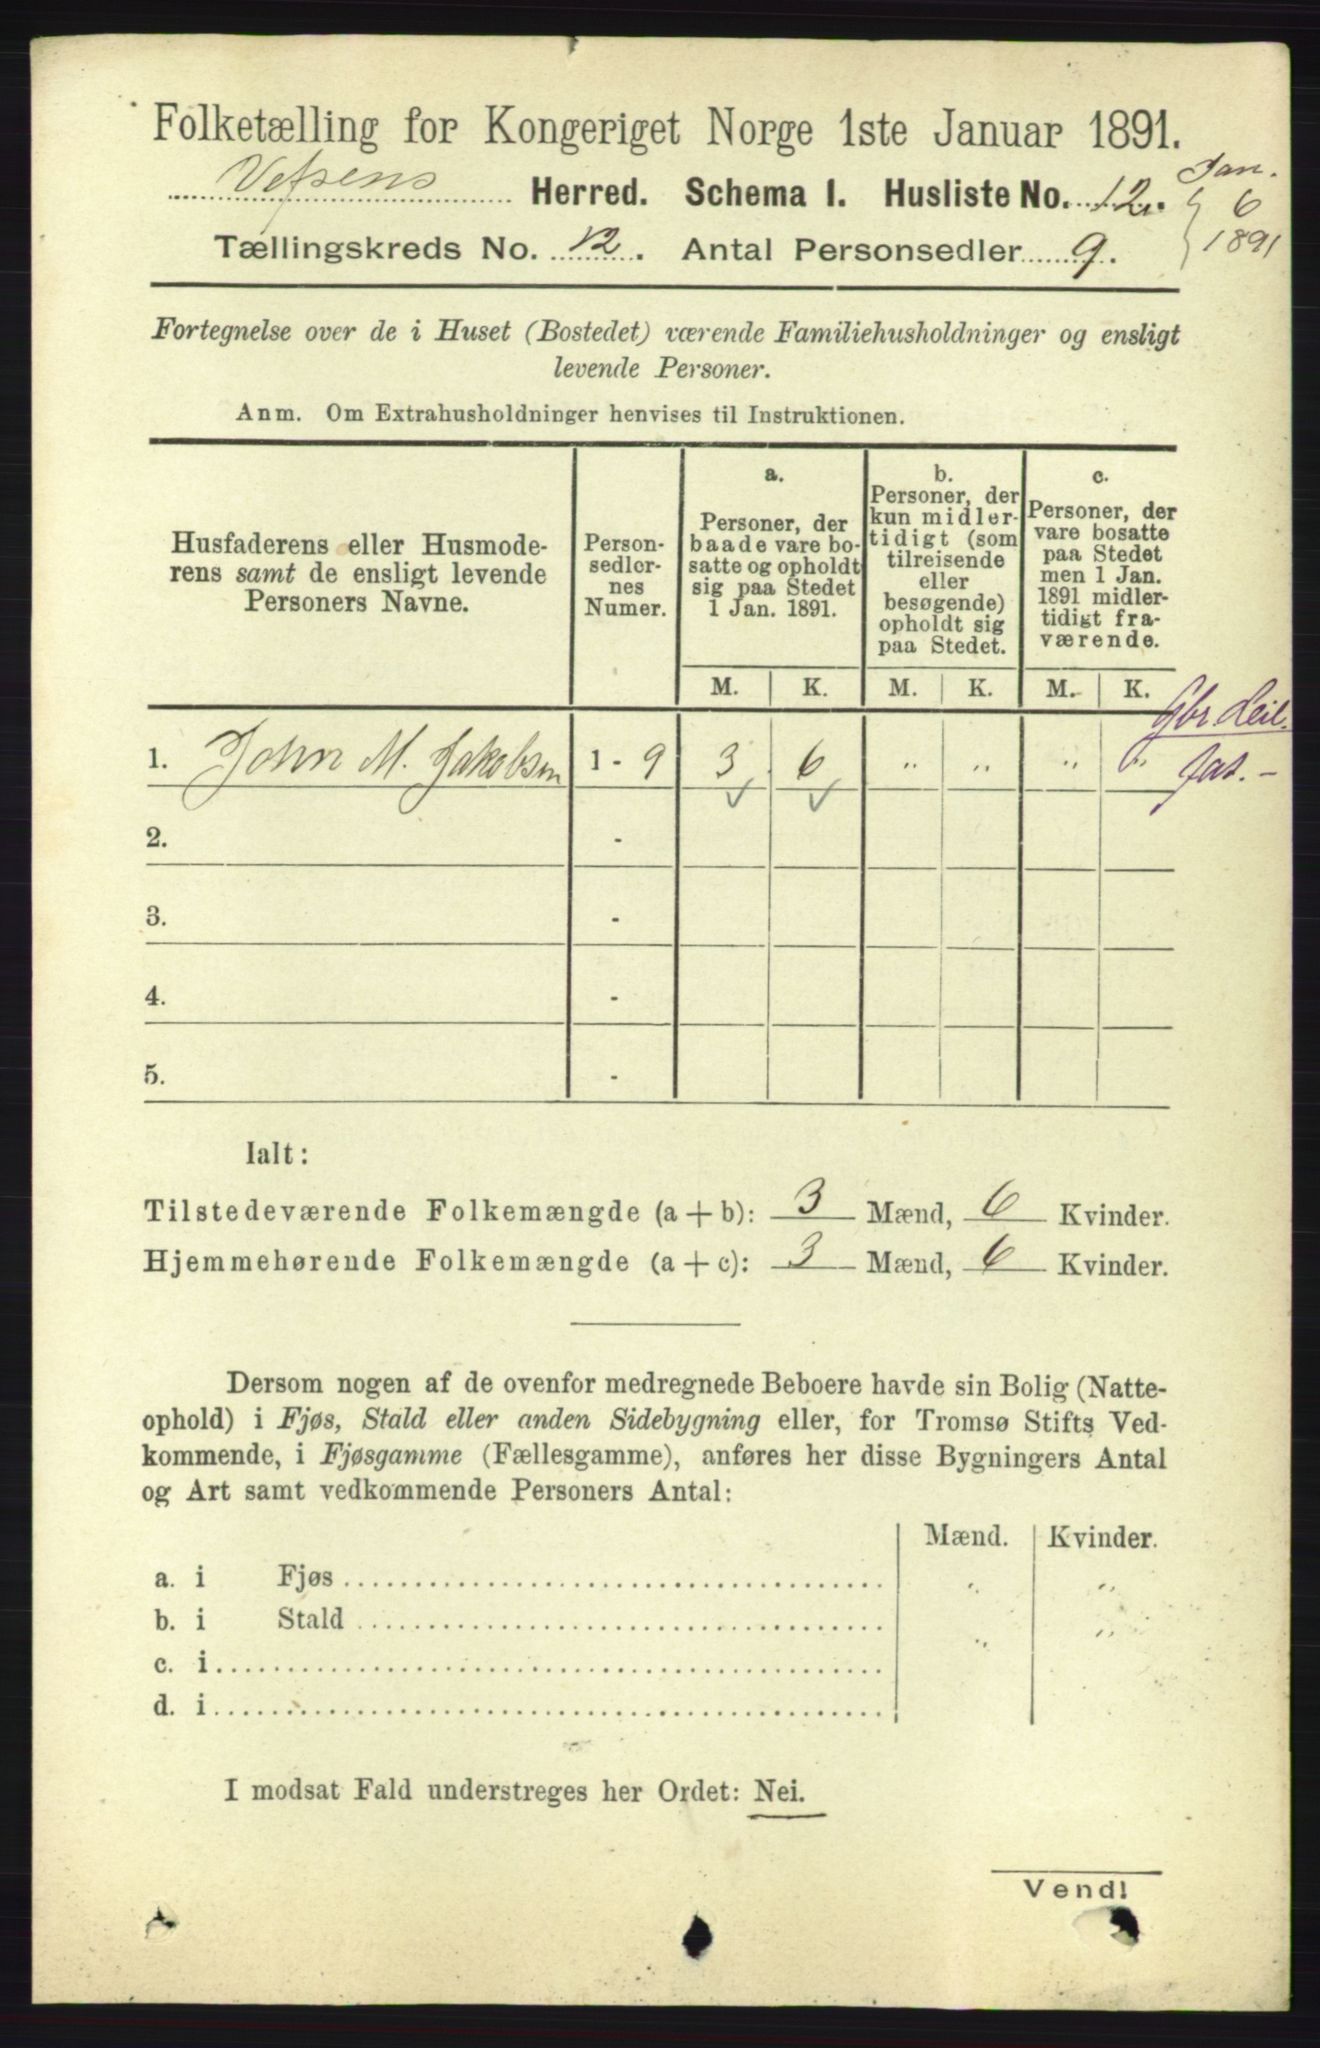 Folketælling for Kongeriget Norge 1ste Januar 1891.
Vefsens Herred. Schema I. Husliste No. 12. Jan. 6 1891
Tællingskreds No. 12. Antal Personsedler 9.
Fortegnelse over de i Huset (Bostedet) værende Familiehusholdninger og ensligt
levende Personer.
Anm. Om Extrahusholdninger henvises til Instruktionen.
Husfaderens eller Husmode-
rens samt de ensligt levende
Personers Navne.
Person-
sedler-
nes
Numer.
a.
Personer, der
baade vare bo-
satte og opholdt
sig paa Stedet
1 Jan. 1891.
b.
Personer, der
kun midler-
tidigt (som
tilreisende
eller
besøgende)
opholdt sig
paa Stedet.
c.
Personer, der
vare bosatte
paa Stedet
men 1 Jan.
1891 midler-
tidigt fra-
værende.
M. K. M. K. M. K.
Gbr. Leil.
1. John M. Jakobsen 1 - 9 3 6 " " " "
2. -
3. -
4. -
5. -
Ialt:
Tilstedeværende Folkemængde (a + b): 3 Mænd, 6 Kvinder.
Hjemmehørende Folkemængde (a + c): 3 Mænd, 6 Kvinder.
Dersom nogen af de ovenfor medregnede Beboere havde sin Bolig (Natte-
ophold) i Fjøs, Stald eller anden Sidebygning eller, for Tromsø Stifts Ved-
kommende, i Fjøsgamme (Fællesgamme), anføres her disse Bygningers Antal
og Art samt vedkommende Personers Antal:
Mænd. Kvinder.
a. i Fjøs " "
b. i Stald " "
c. i
d. i
I modsat Fald understreges her Ordet: Nei.
Vend!